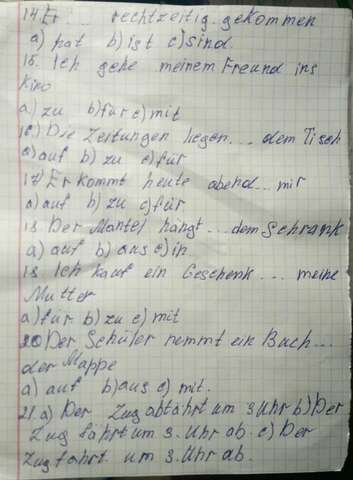 14. Er ... rechtzeitig. gekommen
a) hat b) ist c) sind.
15. Ich gehe meinem Freund ins
Kino
a) zu b) für c) mit
16) Die Zeitungen liegen... dem Tisch
a) auf b) zu c) für
17) Er kommt heute abend... mir
a) auf b) zu c) für
18 Der Mantel hängt... dem Schrank
a) auf b) aus c) in
18 Ich kauf ein Geschenk... meine
Mutter
a) für b) zu c) mit
20) Der Schüler nemmt ein Buch...
der Mappe
a) auf b) aus c) mit.
21. a) Der Zug abfährt um 3 Uhr b) Der
Zug fährt um 3. Uhr ab. c) Der
Zug fahrt um 3. Uhr ab.